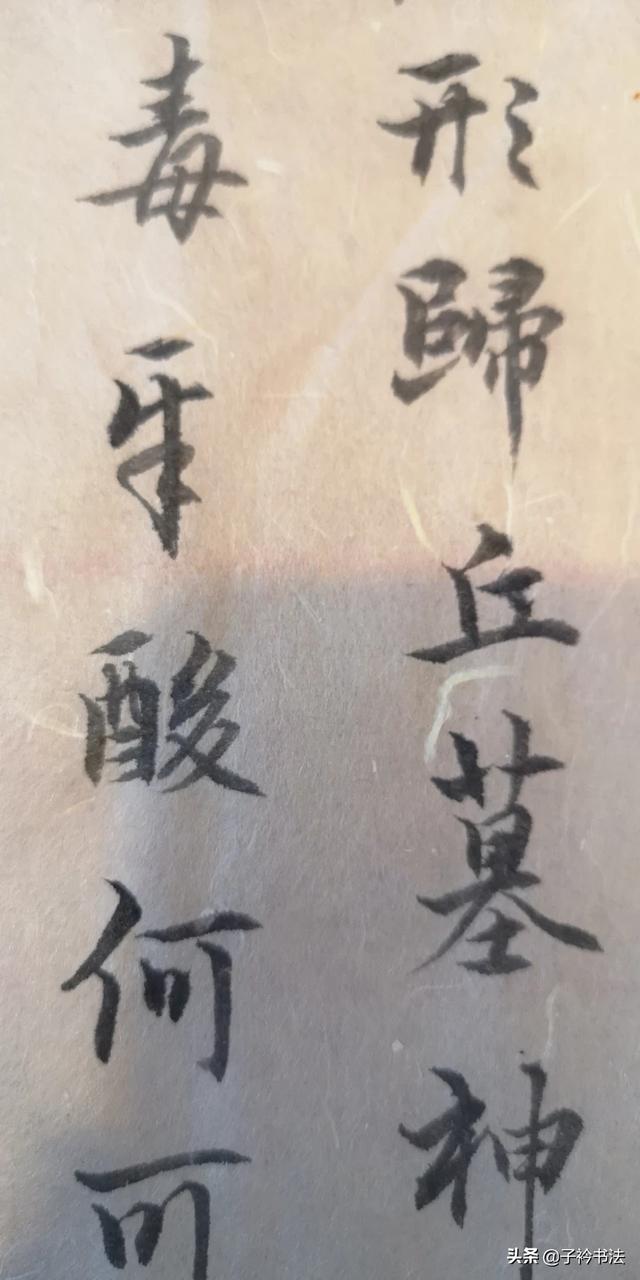 形歸丘墓神
毒辛酸何可
头条 @子衿书法